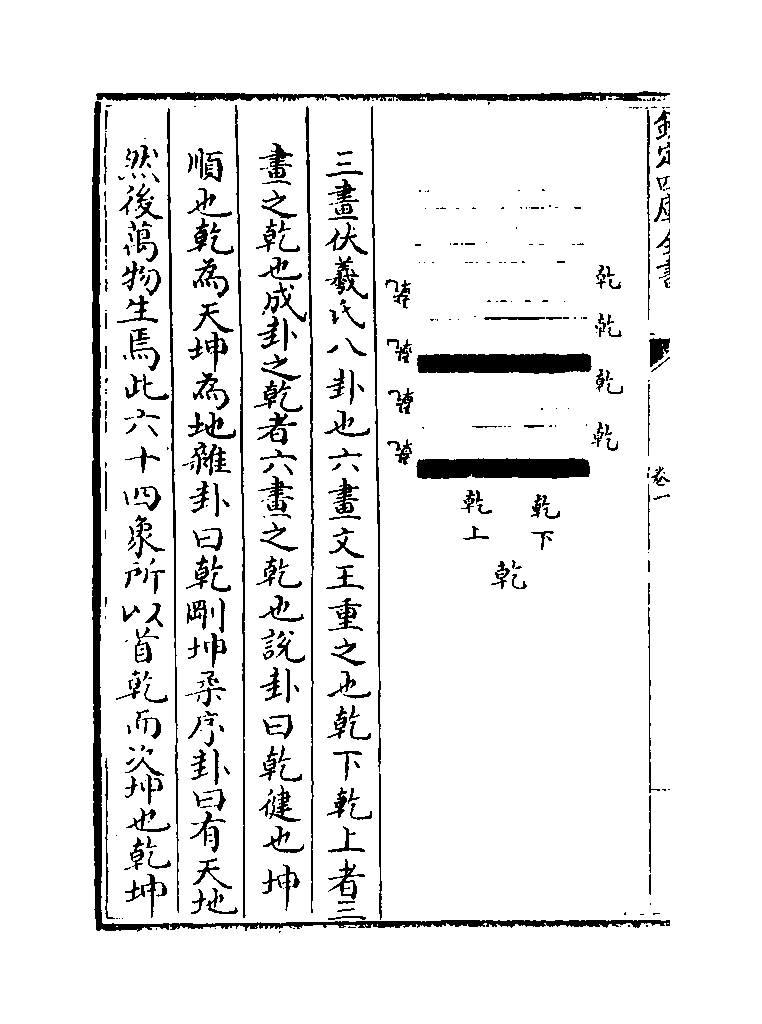 欽定四庫全書
卷一
乾
乾
乾
乾
乾下
乾上
乾
乾
乾
乾
乾
三畫伏羲氏八卦也六畫文王重之也乾下乾上者三
畫之乾也成卦之乾者六畫之乾也說卦曰乾健也坤
順也乾為天坤為地雜卦曰乾剛坤柔序卦曰有天地
然後萬物生焉此六十四象所以首乾而次坤也乾坤